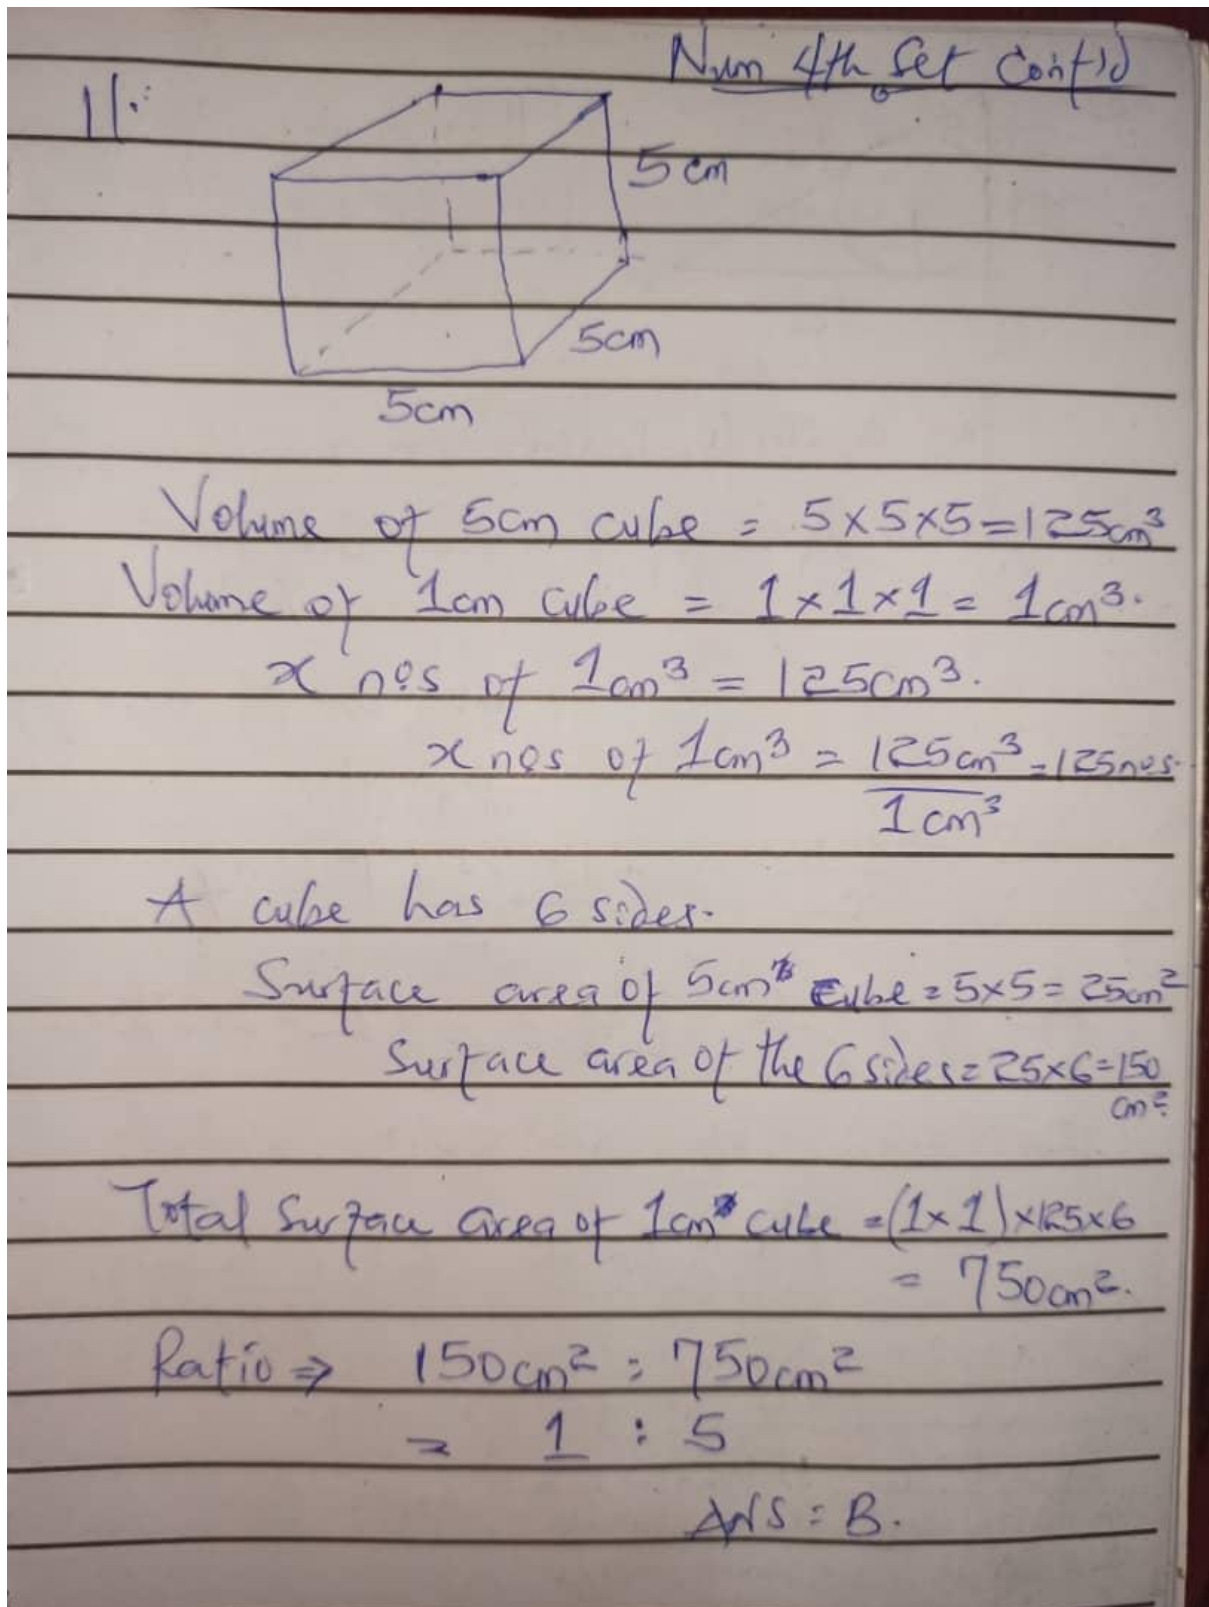 Num 4th Set Cont'd
11.
5cm
5cm
5cm
Volume of 5cm cube = 5×5×5=125cm³
Volume of 1cm cube = 1×1×1= 1cm³.
x nos of 1cm³ = 125cm³.
x nos of 1cm³ = 125cm³ = 125nos.
1cm³
A cube has 6 sides.
Surface area of 5cm cube = 5×5= 25cm²
Surface area of the 6 sides= 25×6=150
cm²
Total Surface area of 1cm cube =(1×1)×125×6
= 750cm².
Ratio ⇒ 150cm² : 750cm²
= 1 : 5
ANS = B.